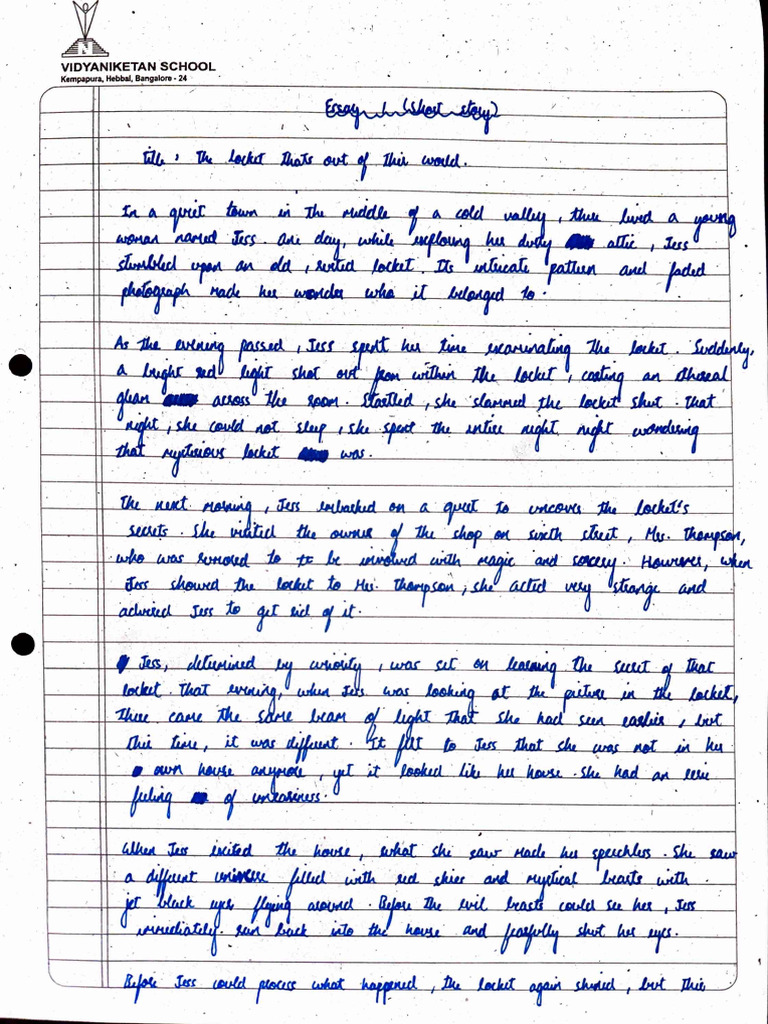 N
VIDYANIKETAN SCHOOL
Kempapura, Hebbal, Bangalore - 24
Essay 1 (Short story)
Title: The Locket thats out of this world.
In a quiet town in the middle of a cold valley, there lived a young
woman named Jess. One day, while exploring her dusty attic, Jess
stumbled upon an old, rusted locket. Its intricate pattern and faded
photograph made her wonder who it belonged to.
As the evening passed, Jess spent her time examinating the locket. Suddenly,
a bright red light shot out from within the locket, casting an ethereal
glean across the room. Startled, she slammed the locket shut. That
night, she could not sleep, she spent the entire night night wondering
that mysterious locket was.
The next morning, Jess embarked on a quest to uncover the locket's
secrets. She visited the owner of the shop on sixth street, Mrs. Thompson,
who was rumored to be involved with magic and sorcery. However, when
Jess showed the locket to Mrs. Thompson, she acted very strange and
adviced Jess to get rid of it.
Jess, determined by curiosity, was set on learning the secret of that
locket. That evening, when Jess was looking at the picture in the locket,
there came the same beam of light that she had seen earlier, but
this time, it was different. It felt to Jess that she was not in her
own house anymore, yet it looked like her house. She had an eerie
feeling of uneasiness.
When Jess exited the house, what she saw made her speechless. She saw
a different universe filled with red skies and mystical beasts with
jet black eyes flying around. Before the evil beasts could see her, Jess
immediately run back into the house and fearfully shut her eyes.
Before Jess could process what happened, the locket again shined, but this